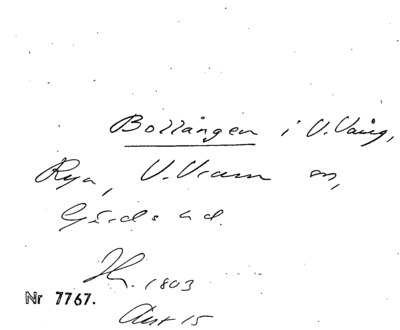 Bollängen i V. Vång,
Rya, V. Vram sn,
Gärds hd.
1803
Nr 7767.
Akt 15